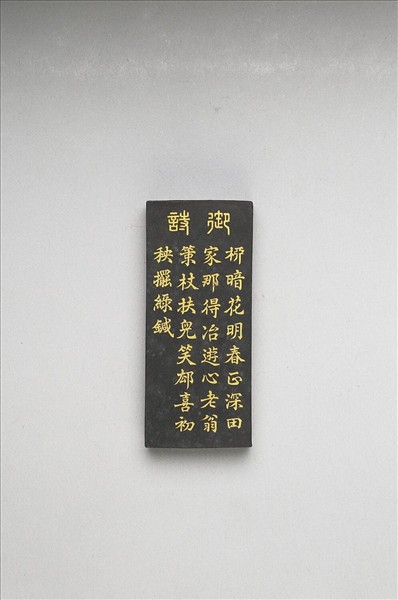 御詩
桺暗花明春正深田
家那得冶遊心老翁
策杖扶兒笑郤喜初
秧擢綠鍼